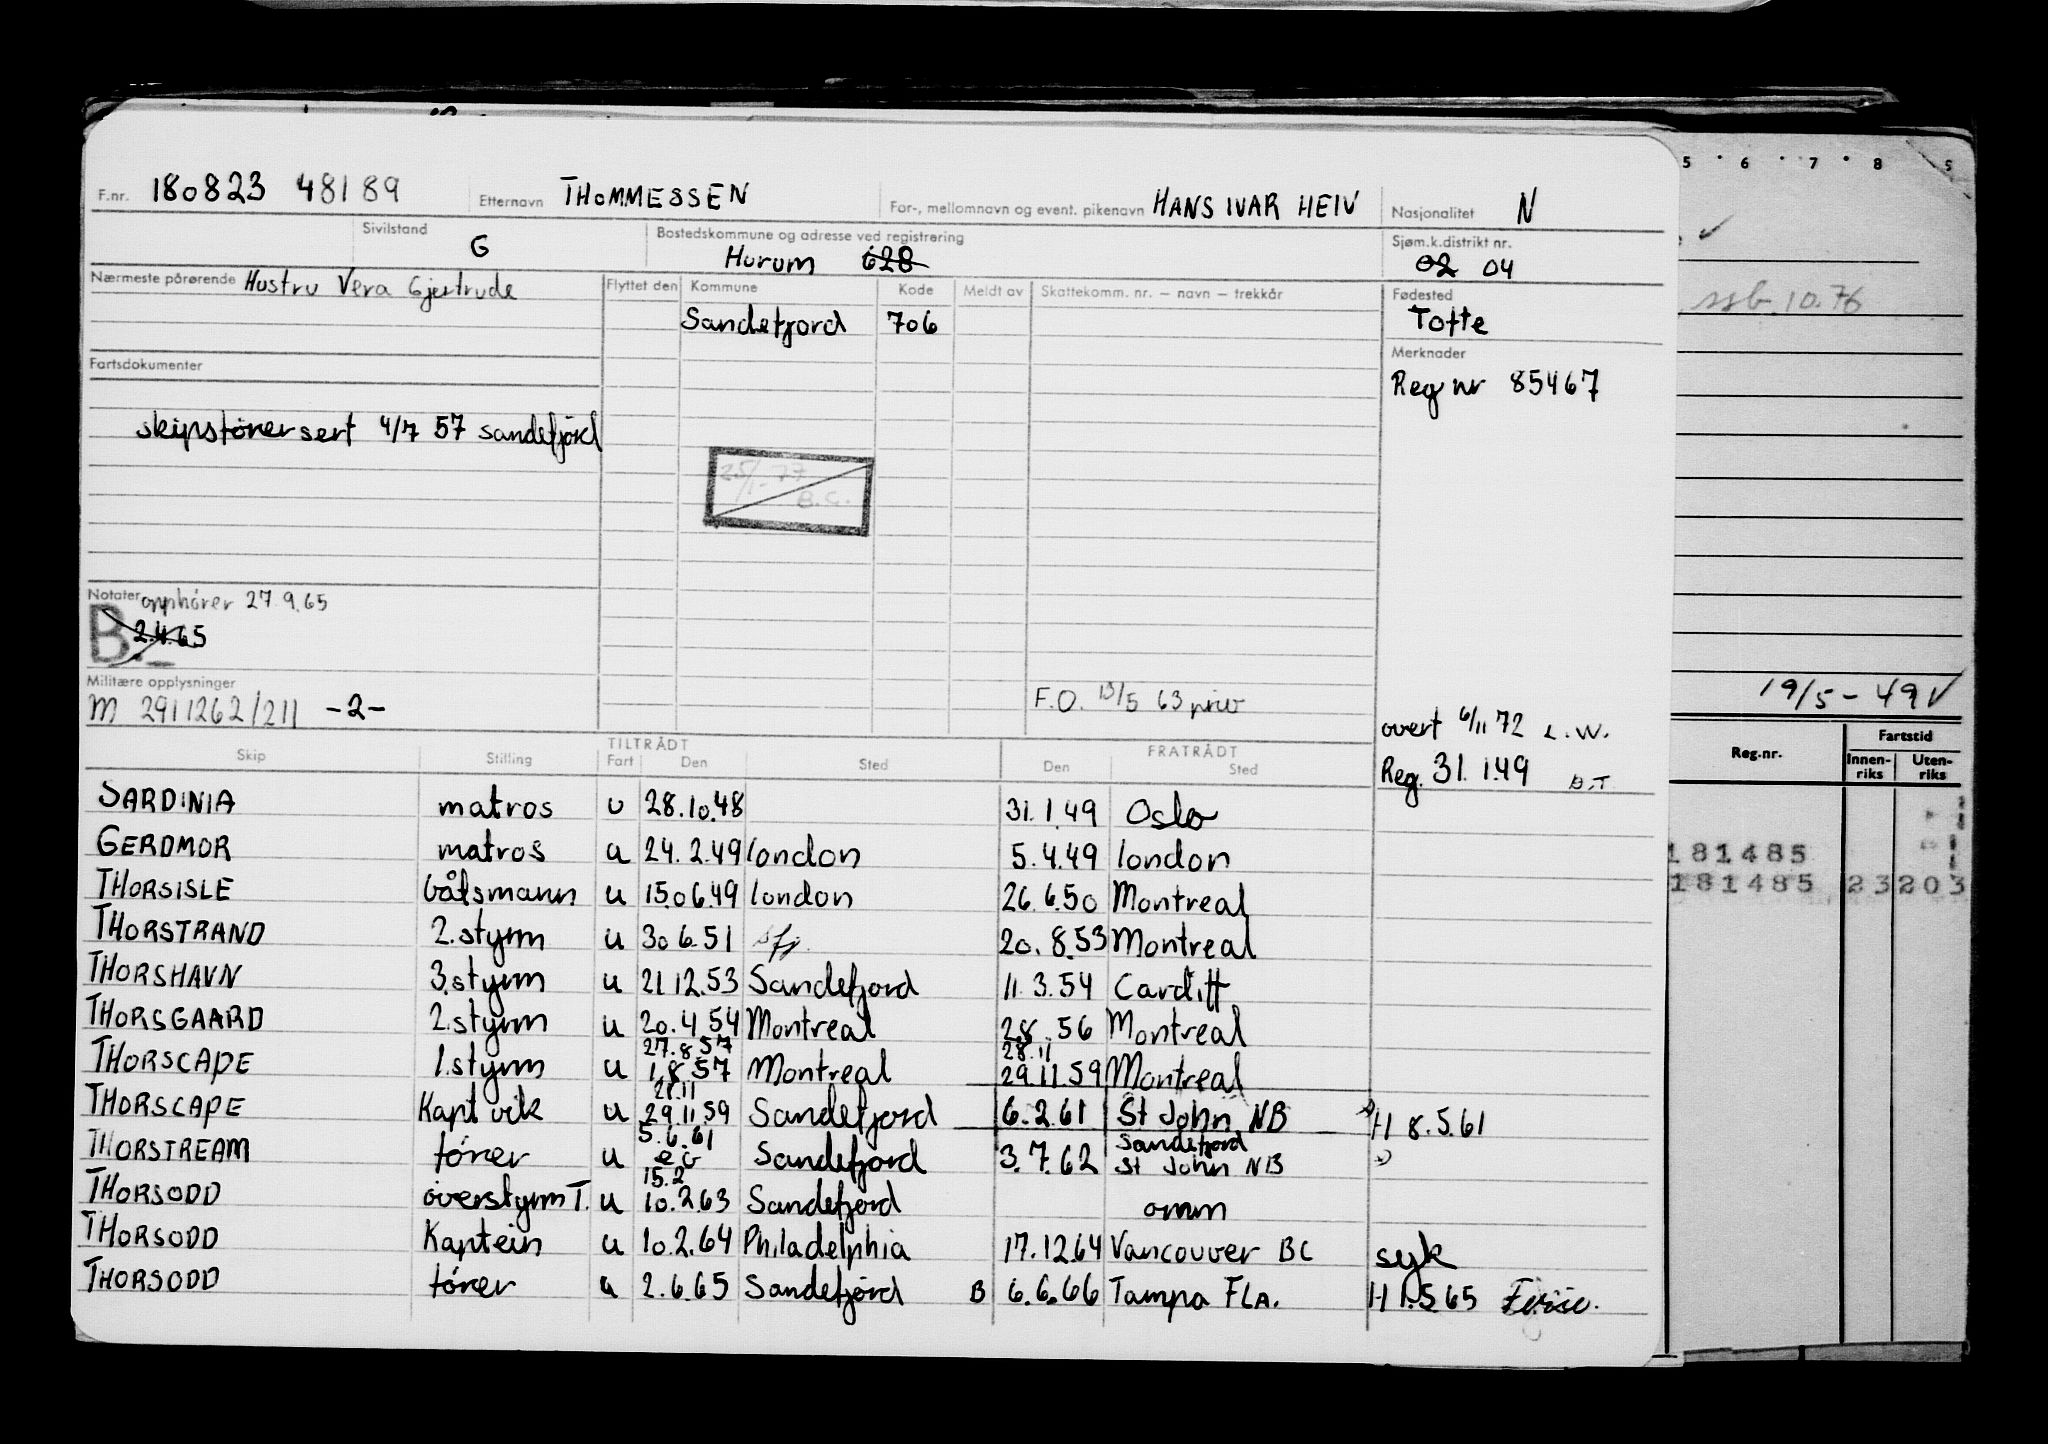 F.nr. 180823 48189 Etternavn THOMMESSEN For-, mellomnavn og event. pikenavn HANS IVAR HEIV Nasjonalitet N
Sivilstand G Bostedskommune og adresse ved registrering Hurum 628 Sjøm.k.distrikt nr. 02 04
Nærmeste pårørende Hustru Vera Gjertrude Flyttet den Kommune Kode Meldt av Skattekomm. nr. – navn – trekkår Fødested
Sandefjord 706 Tofte
Fartsdokumenter Merknader
Reg nr 85467
skipsførersert 4/7 57 Sandefjord
25/1-77
B.G.
Notater opphører 27.9.65
B 2.4.65
Militære opplysninger
M 2911262/211 -2-
F.O. 13/5 63 priv
overf 6/11 72 L.W.
Reg. 31.1.49 B.T.
TILTRÅDT FRATRÅDT
Skip Stilling Fart Den Sted Den Sted
SARDINIA matros u 28.10.48 31.1.49 Oslo
GERDMOR matros a 24.2.49 london 5.4.49 london
THORSISLE båtsmann u 15.06.49 london 26.6.50 Montreal
THORSTRAND 2.styrm u 30 6.51 sfj. 20.8.53 Montreal
THORSHAVN 3.styrm u 21 12.53 Sandefjord 11.3.54 Cardiff
THORSGAARD 2.styrm u 20.4 54 Montreal 28.56 Montreal
27.8 57 28.11
THORSCAPE 1.styrm u 1.8 57 Montreal 29.11.59 Montreal
28.11
THORSCAPE Kapt vik u 29.11.59 Sandefjord 6.2.61 St John NB H 8.5.61
5.6.61 Sandefjord
THORSTREAM fører u Sandefjord 3.7.62 St John NB
15.2
THORSODD overstyrm T. u 10.2.63 Sandefjord omm
THORSODD Kaptein u 10.2.64 Philadelphia 17.12.64 Vancouver BC syk
THORSODD fører u 2.6.65 Sandefjord B 6.6.66 Tampa FLA. H 1.5 65 Ferie.
5 · 6 · 7 · 8 S
ssb. 10.76
19/5-49
Reg.nr. Fartstid
Innen-riks Uten-riks
181485
181485 23 203